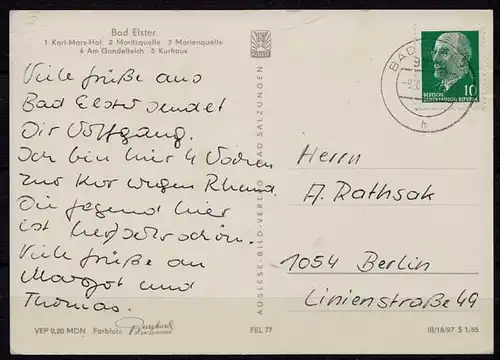 Bad Elster
1 Karl-Marx-Hof 2 Moritzquelle 3 Marienquelle
4 Am Gondelteich 5 Kurhaus
Viele Grüße aus
Bad Elster sendet
Dir Wolfgang.
Ich bin hier 4 Wochen
zur Kur wegen Rheuma.
Die Gegend hier
ist sehr schön.
Viele Grüße an
Margot und
Thomas.
VEP 0,20 MDN Farbfoto
FEL 77
AUSLESE-BILD-VERLAG BAD SALZUNGEN
BAD
h
DEUTSCHE
DEMOKRATISCHE REPUBLIK
10
Herrn
A. Rathsak
1054 Berlin
Linienstraße 49
III/18/97 S 1/65